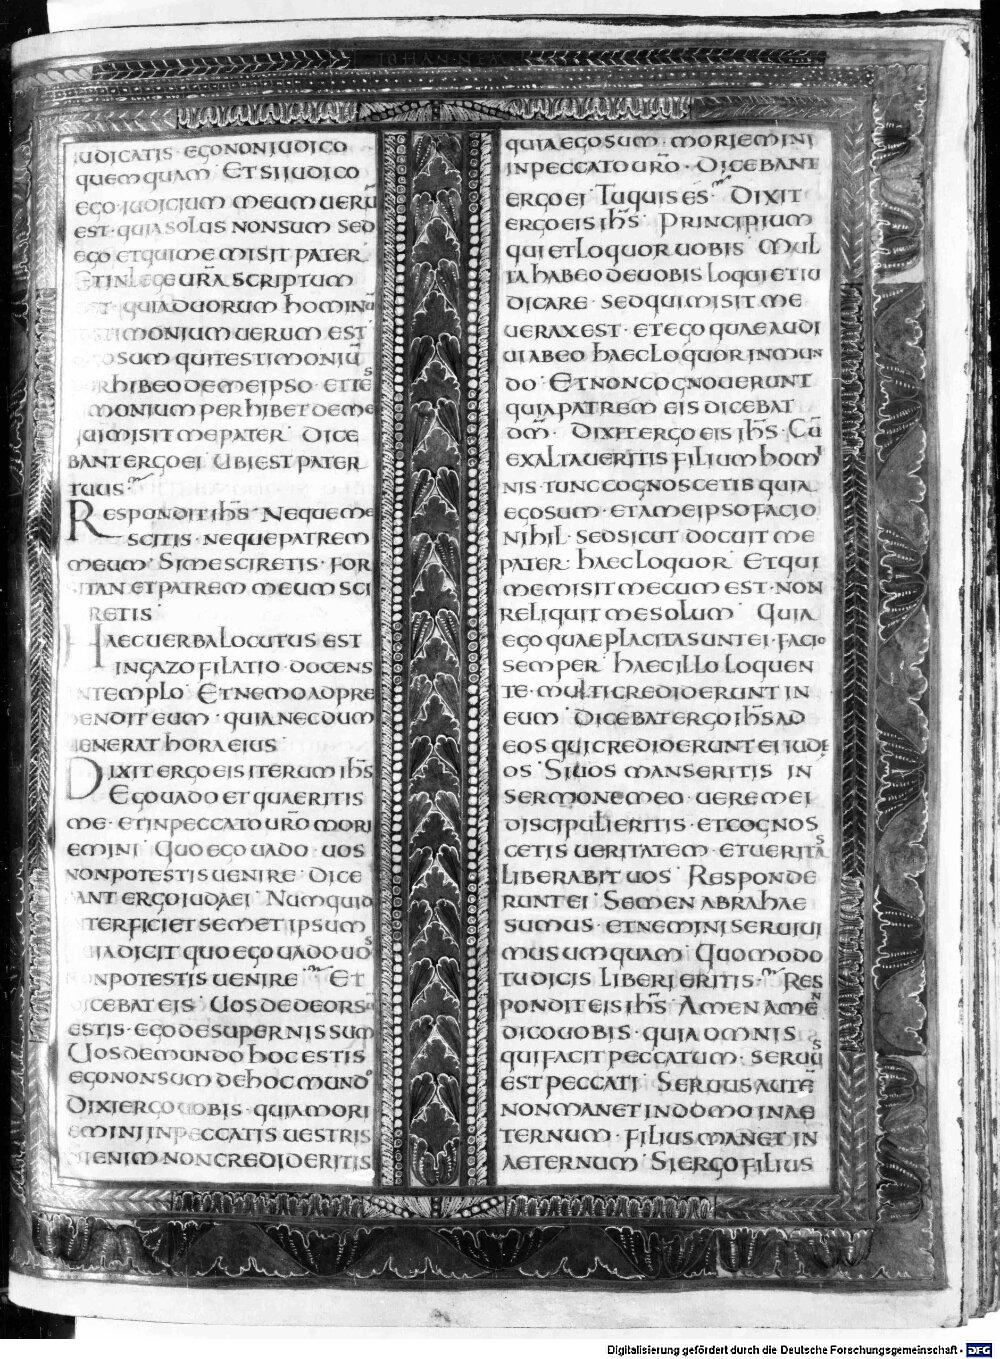 IUDICATIS · EGO NON IUDICO
QUEMQUAM · ET SI IUDICO
EGO · IUDICIUM MEUM UERŪ
EST · QUIA SOLUS NON SUM SED
EGO ET QUI ME MISIT PATER
ET IN LEGE UR̄A SCRIPTUM
EST · QUIA DUORUM HOMINŪ
TESTIMONIUM UERUM EST
EGO SUM QUI TESTIMONIŪ
PERHIBEO DE ME IPSO · ET TES
MONIUM PERHIBET DE ME
QUI MISIT ME PATER · DICE
BANT ERGO EI · UBI EST PATER
TUUS
RESPONDIT IHS̄ · NEQUE ME
SCITIS · NEQUE PATREM
MEUM · SI ME SCIRETIS · FOR
SITAN ET PATREM MEUM SCI
RETIS
HAEC UERBA LOCUTUS EST
IN GAZOFILATIO · DOCENS
IN TEMPLO · ET NEMO ADPRE
HENDIT EUM · QUIA NECDUM
UENERAT HORA EIUS
DIXIT ERGO EIS ITERUM IHS̄
EGO UADO ET QUAERITIS
ME · ET IN PECCATO UR̄O MORI
EMINI · QUO EGO UADO · UOS
NON POTESTIS UENIRE · DICE
BANT ERGO IUDAEI · NUMQUID
INTERFICIET SEMET IPSUM
QUIA DICIT QUO EGO UADO UOS
NON POTESTIS UENIRE · ET
DICEBAT EIS · UOS DE DEORSŪ
ESTIS · EGO DE SUPERNIS SUM
UOS DE MUNDO HOC ESTIS
EGO NON SUM DE HOC MUNDO
DIXI ERGO UOBIS · QUIA MORI
EMINI IN PECCATIS UESTRIS
SI ENIM NON CREDIDERITIS
QUIA EGO SUM · MORIEMINI
IN PECCATO UR̄O · DICEBANT
ERGO EI · TU QUIS ES · DIXIT
ERGO EIS IHS̄ · PRINCIPIUM
QUI ET LOQUOR UOBIS · MUL
TA HABEO DE UOBIS LOQUI ET IU
DICARE · SED QUI MISIT ME
UERAX EST · ET EGO QUAE AUDI
UI AB EO HAEC LOQUOR IN MUN
DO · ET NON COGNOUERUNT
QUIA PATREM EIS DICEBAT
DM̄ · DIXIT ERGO EIS IHS̄ · CŪ
EXALTAUERITIS FILIUM HOMI
NIS · TUNC COGNOSCETIS QUIA
EGO SUM · ET A ME IPSO FACIO
NIHIL · SED SICUT DOCUIT ME
PATER · HAEC LOQUOR · ET QUI
ME MISIT MECUM EST · NON
RELIQUIT ME SOLUM · QUIA
EGO QUAE PLACITA SUNT EI · FACIO
SEMPER · HAEC ILLO LOQUEN
TE · MULTI CREDIDERUNT IN
EUM · DICEBAT ERGO IHS̄ AD
EOS QUI CREDIDERUNT EI IUDE
OS · SI UOS MANSERITIS IN
SERMONE MEO · UERE MEI
DISCIPULI ERITIS · ET COGNOS
CETIS UERITATEM · ET UERITAS
LIBERABIT UOS · RESPONDE
RUNT EI · SEMEN ABRAHAE
SUMUS · ET NEMINI SERUIUI
MUS UMQUAM · QUOMODO
TU DICIS LIBERI ERITIS · RES
PONDIT EIS IHS̄ · AMEN AMEN
DICO UOBIS · QUIA OMNIS
QUI FACIT PECCATUM · SERUUS
EST PECCATI · SERUUS AUTĒ
NON MANET IN DOMO IN AE
TERNUM · FILIUS MANET IN
AETERNUM · SI ERGO FILIUS
Digitalisierung gefördert durch die Deutsche Forschungsgemeinschaft - DFG